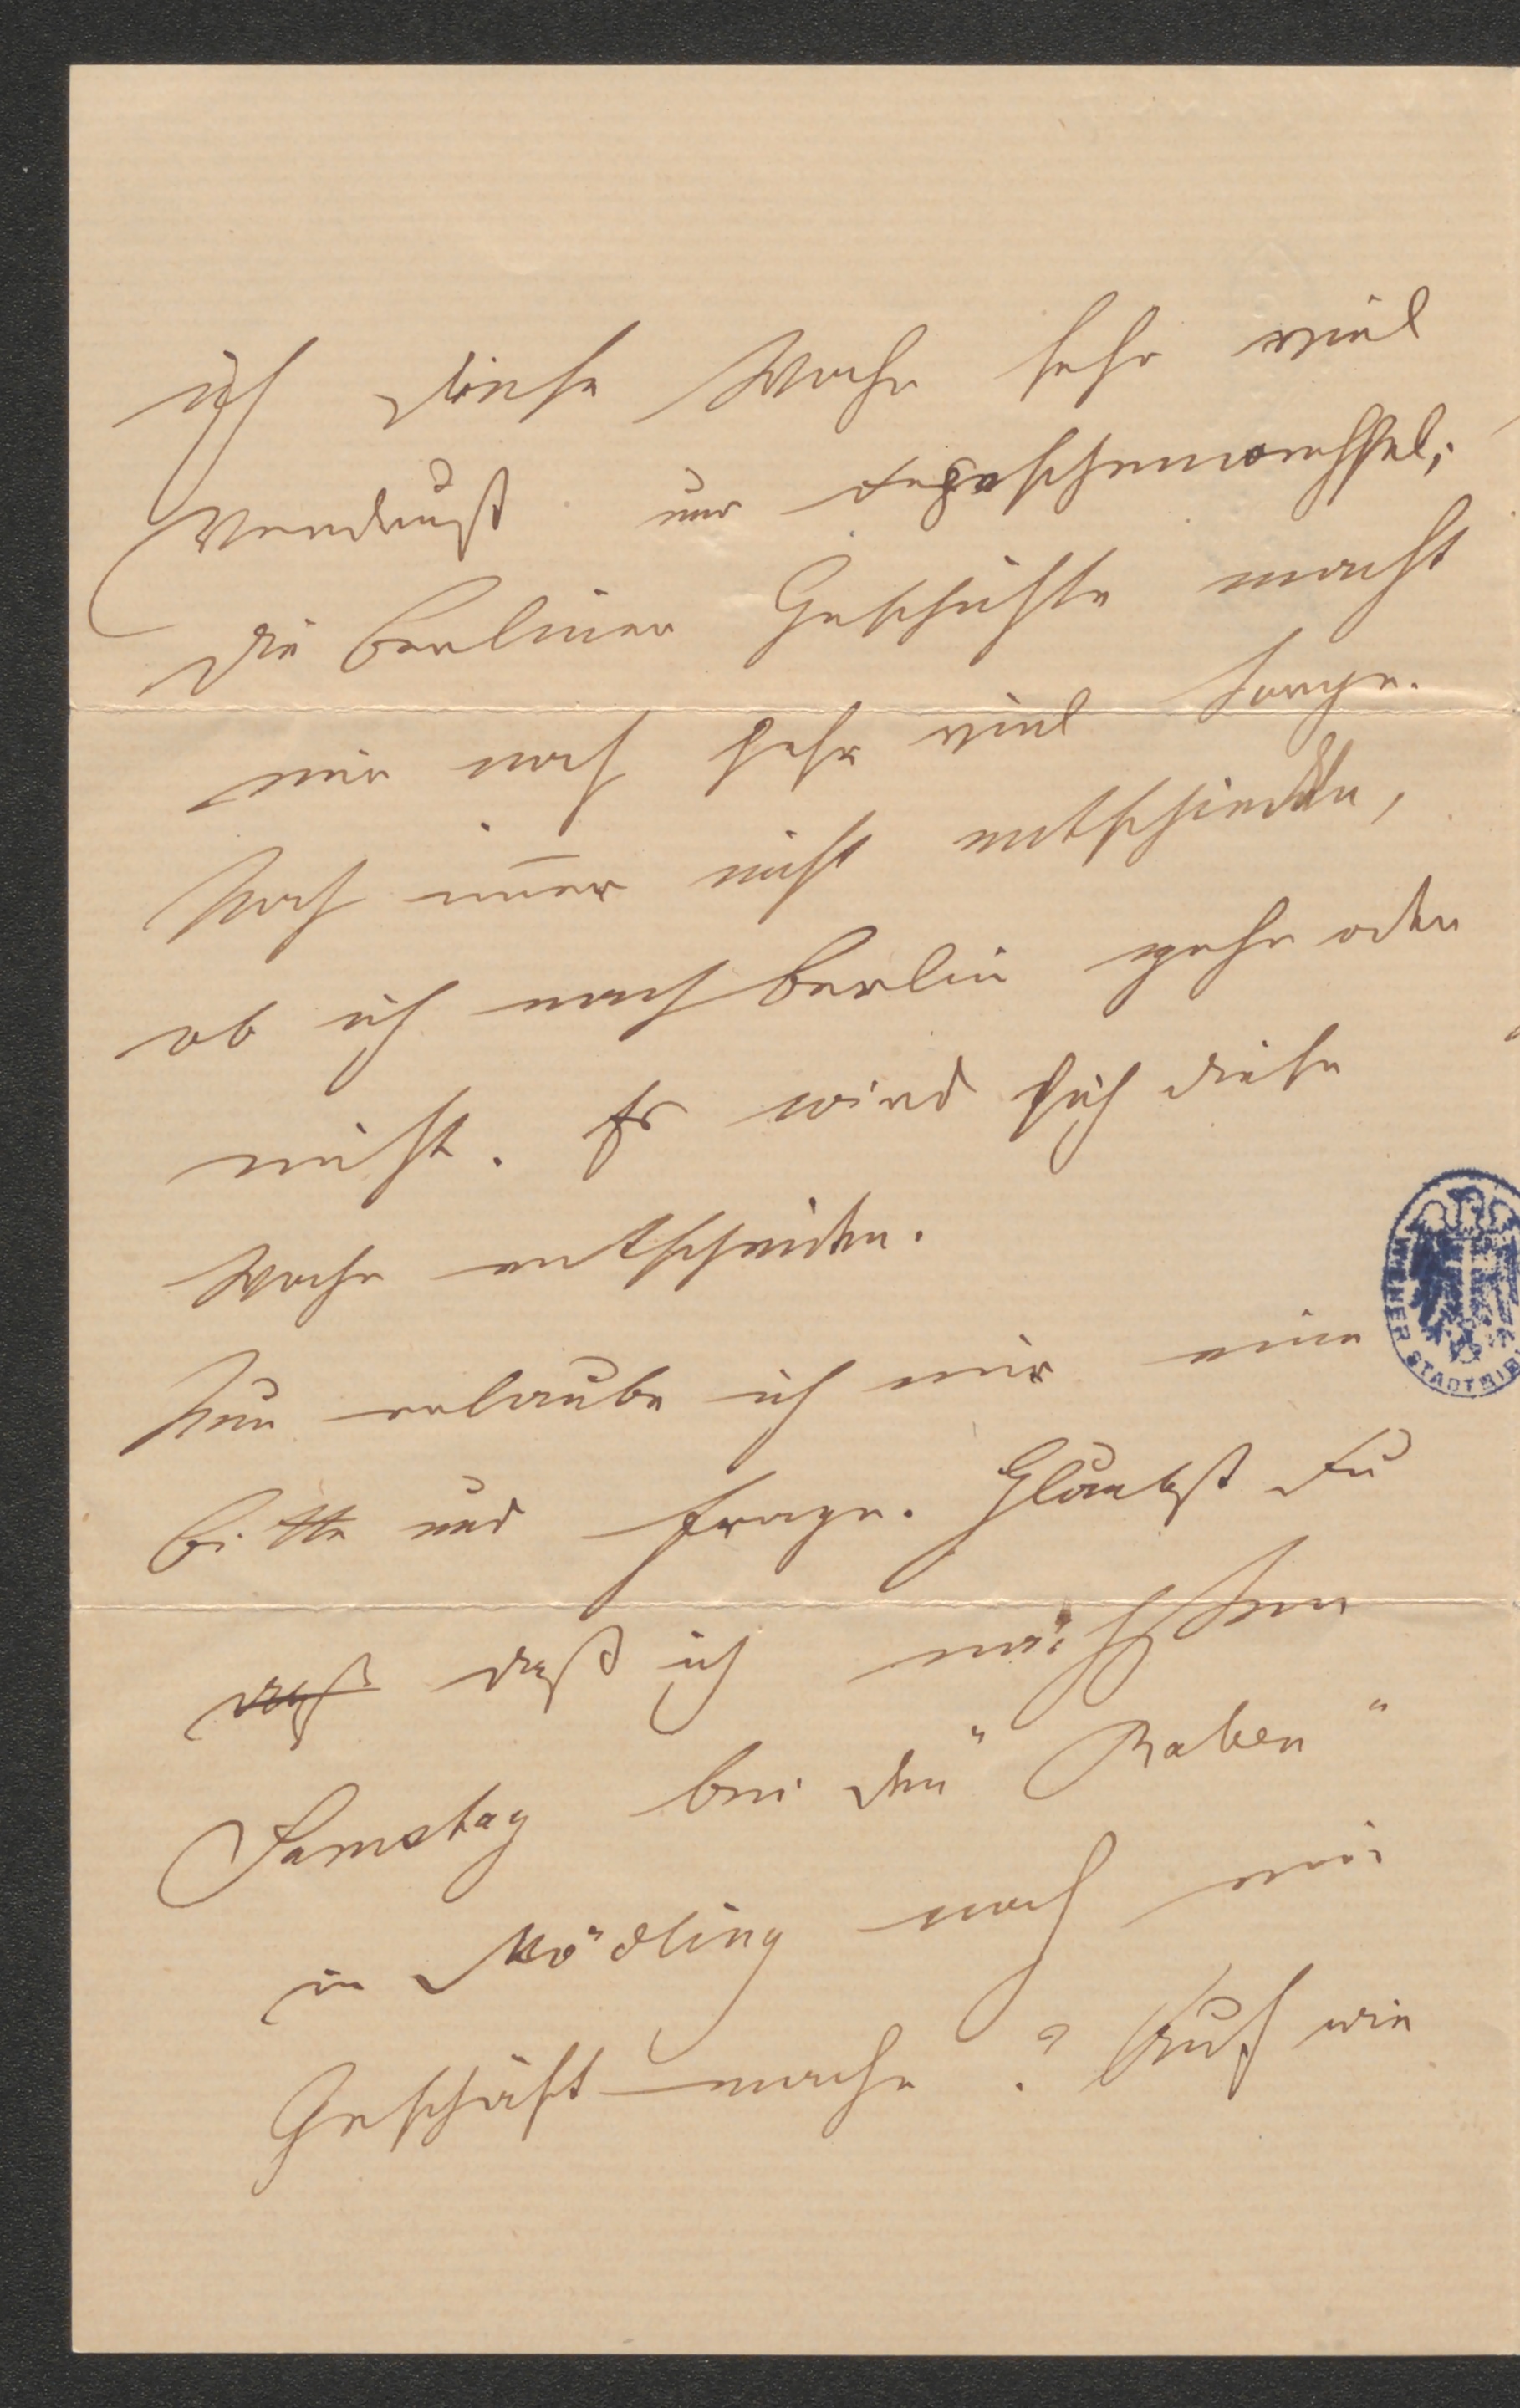 ich diese Woche sehr viel
Verdruß nur Depeschenwechsel;
die Berliner Geschichte macht
mir noch sehr viel Sorge.
Noch im̅er nicht entschieden,
ob ich nach Berlin gehe oder
nicht. Es wird sich diese
Woche entscheiden.
Nun erlaube ich mir eine
Bitte und Frage. Glaubst Du
daß ich nächsten
Samstag bei den "Raben"
in Mödling noch ein
Geschäft mache? Auch wie
WIENER STADTBIB